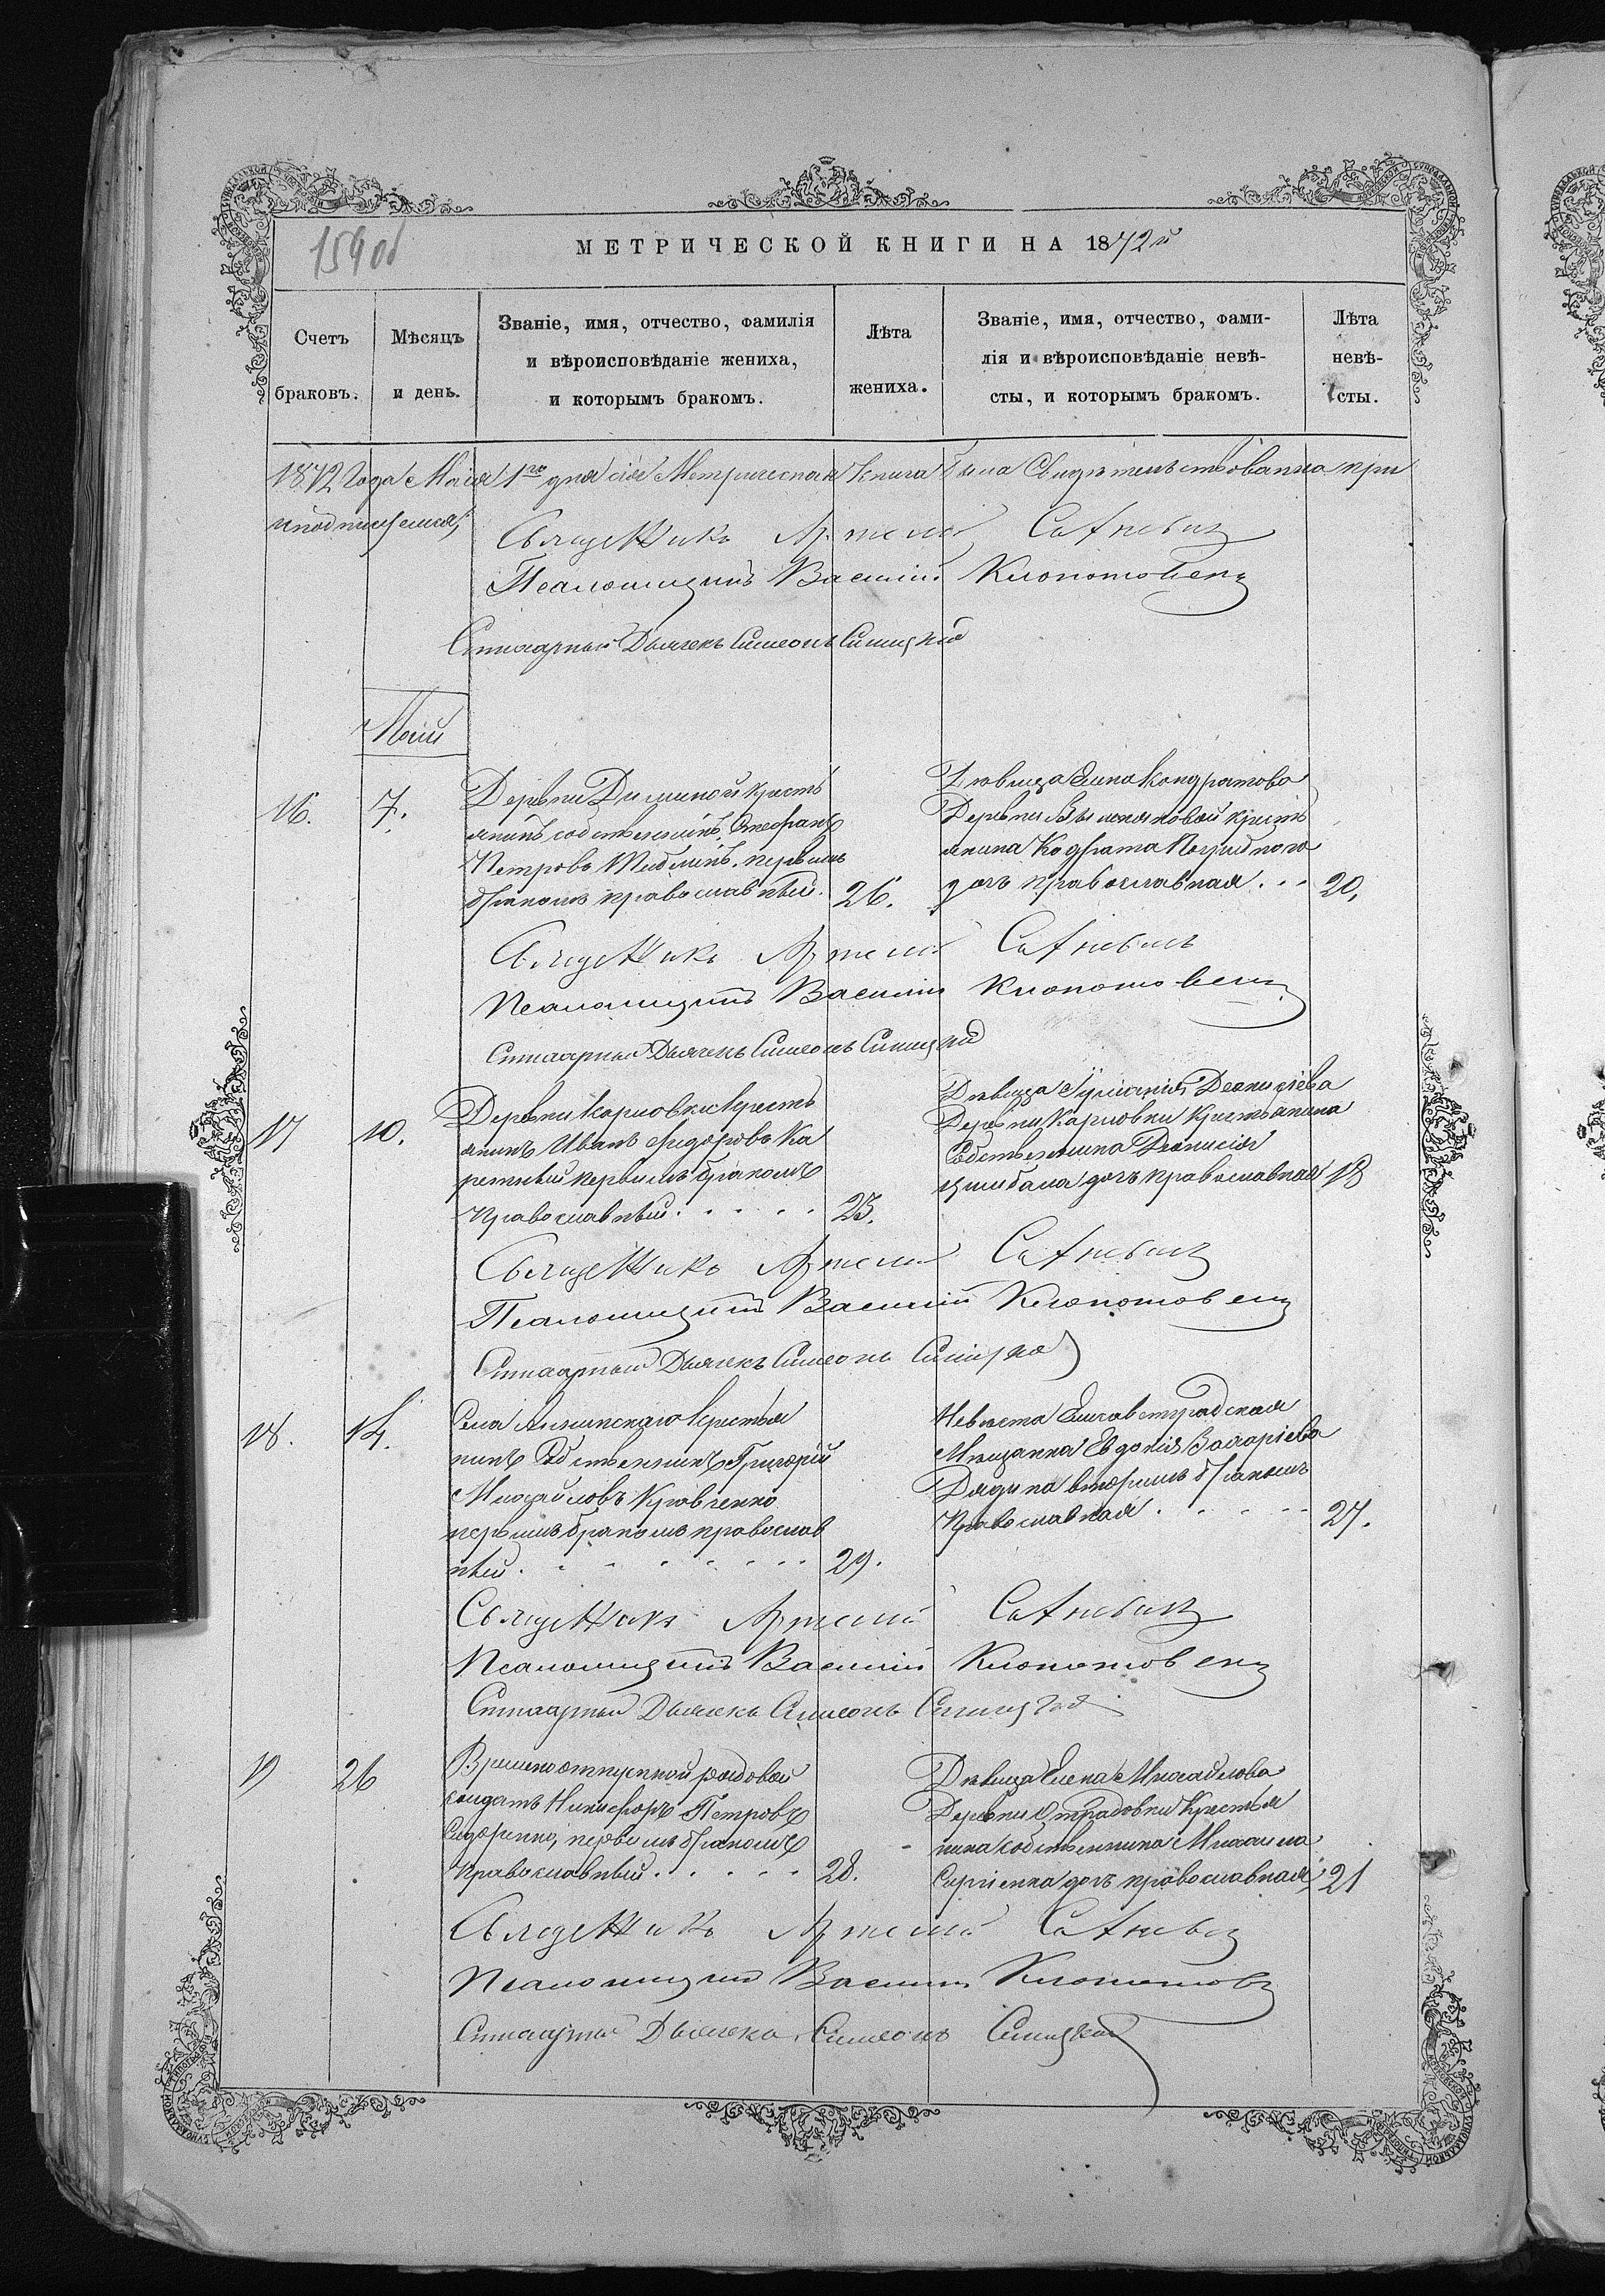 159 об
МЕТРИЧЕСКОЙ КНИГИ НА 1872й
Счетъ браковъ.
Мѣсяцъ и день.
Званіе, имя, отчество, фамилія
и вѣроисповѣданіе жениха,
и которымъ бракомъ.
Лѣта
жениха.
Званіе, имя, отчество, фами-
лія и вѣроисповѣданіе невѣ-
сты, и которымъ бракомъ.
Лѣта
невѣ-
сты.
1872 Года Маія 1го дня сія Метрическая Книга была Свидѣтельствованна при
Священникъ Артемій
Псаломщикъ Василій Клопотовскій
Дьячекъ Симеонъ Синицкій
Маій
16.
7.
Деревни Диминой кресть
янинъ собственникъ Стефанъ
Петровъ первымъ
бракомъ православный.
26.
Дѣвица Кондратова
Деревни кресть
янина
дочь православная . . .
20.
Священникъ Артемій
Псаломщикъ Василій Клопотовскій
Дьячекъ Симеонъ Синицкій
17
10.
Деревни Карловки Кресть
янинъ Иванъ Ѳедоровъ Ка
ретный первымъ бракомъ
Православный. . . . .
23.
Дѣвица Іуліанія Деонисіева
Деревни Карловки Крестьянина
Собственника Деонисія
Цымбала дочь православная
18
Священникъ Артемій
Псаломщикъ Василій Клопотовскій
Дьячекъ Симеонъ Синицкій
18.
14.
Села Аннинскаго Крестья
нинъ Собственникъ Григорій
Михайловъ Кравченко
первымъ бракомъ православ
ный. . . . . . . .
29.
Невѣста Елисаветградская
Мѣщанка Евдокія Захаріева
вторымъ бракомъ
Православная . . . . .
27.
Священникъ Артемій
Псаломщикъ Василій Клопотовскій
Дьячекъ Симеонъ Синицкій
19
26
Временноотпускной рядовой
солдатъ Никифоръ Петровъ
Сидоренко, первымъ бракомъ
Православный. . . . .
28.
Дѣвица Елена Михайлова
Деревни Отрадовки Крестья
нина собственника Михаила
Сергіенка дочь православная
21
Священникъ Артемій
Псаломщикъ Василій
Дьячекъ Симеонъ Синицкій